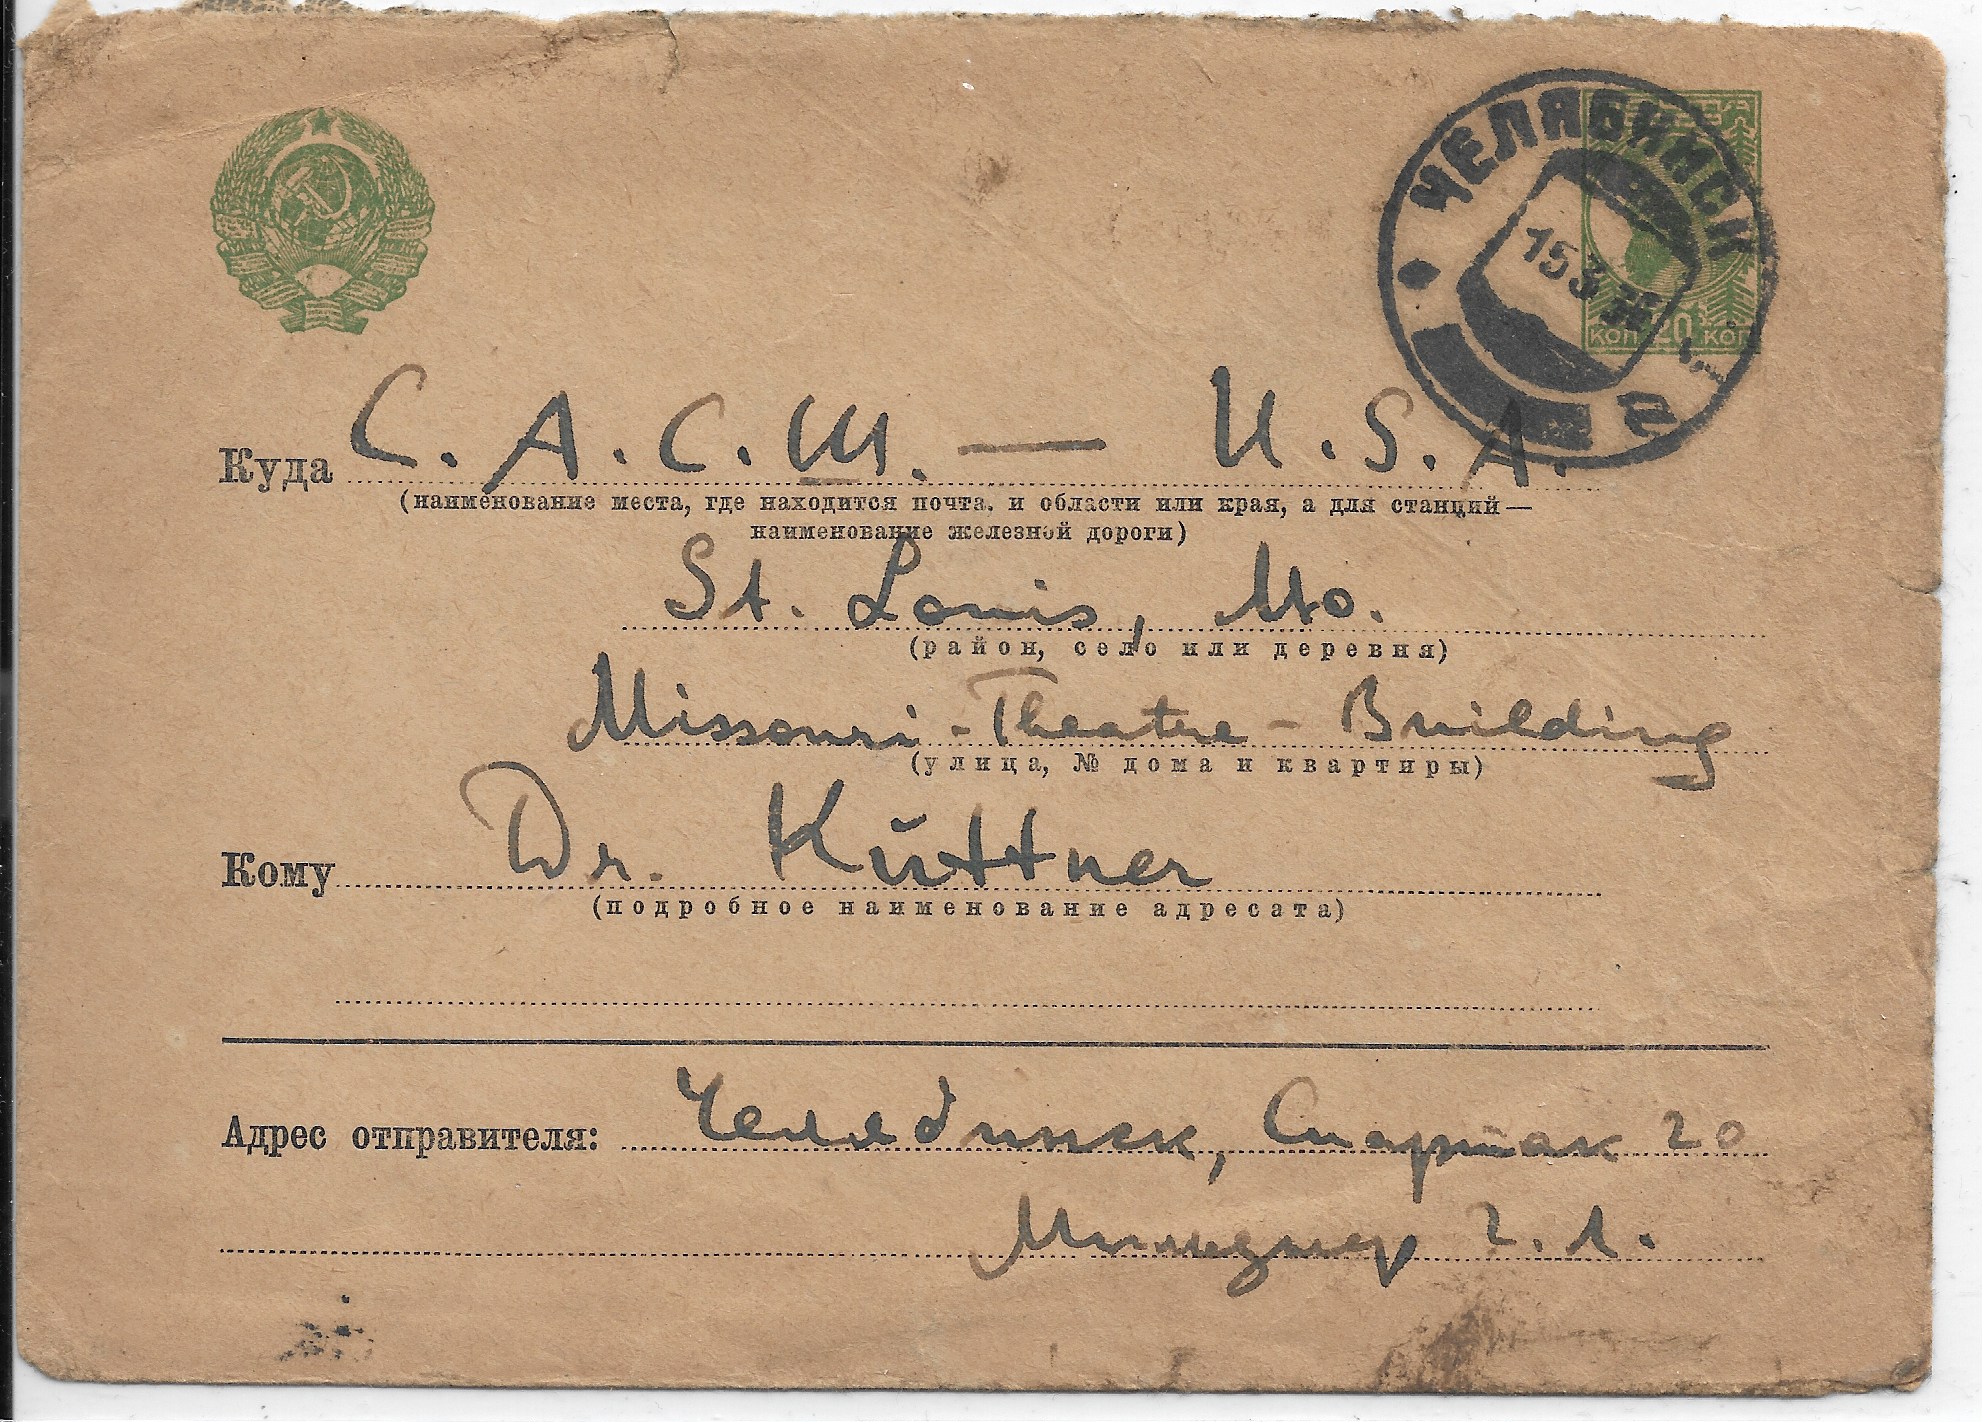 ЧЕЛЯБИНСК
15 3 36
а
КОП 20 КОП
Куда С. А. С. Ш. — U. S. A.
(наименование места, где находится почта, и области или края, а для станций—
наименование железной дороги)
St. Louis, Mo.
(район, село или деревня)
Missouri-Theatre-Building
(улица, № дома и квартиры)
Кому Dr. Küttner
(подробное наименование адресата)
Адрес отправителя: Челябинск, Спартак 20
г. Л.